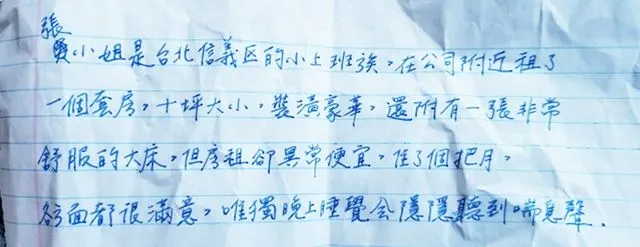 張小姐是台北信義区的小上班族,在公司附近租了
一個套房,十坪大小,裝潢豪華,還附有一張非常
舒服的大床,但房租卻異常便宜,住了個把月,
各面都很滿意,唯獨晚上睡覺会隱隱聽到喘息聲.